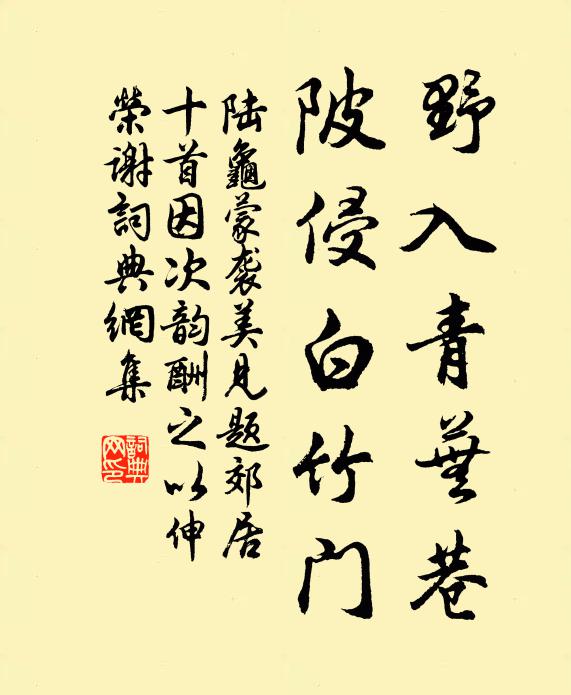 野入青蕪巷
陂侵白竹门
陆龜蒙袭美見题郊居
十首因次韵酬之以伸
荣谢詞典網集
詞典
网印